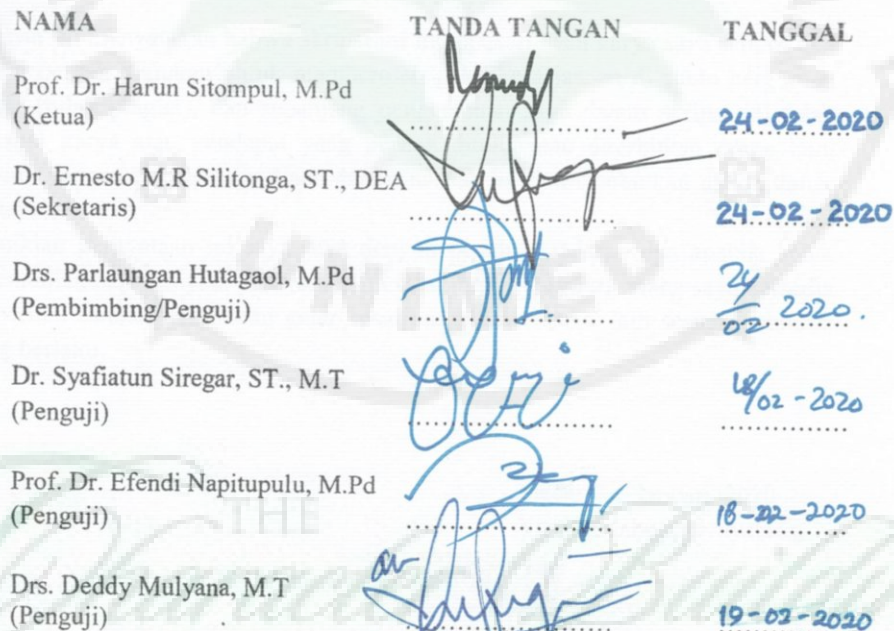 NAMA TANDA TANGAN TANGGAL
Prof. Dr. Harun Sitompul, M.Pd
(Ketua) 24-02-2020
Dr. Ernesto M.R Silitonga, ST., DEA
(Sekretaris) 24-02-2020
Drs. Parlaungan Hutagaol, M.Pd
(Pembimbing/Penguji) 24/02 2020.
Dr. Syafiatun Siregar, ST., M.T
(Penguji) 18/02-2020
Prof. Dr. Efendi Napitupulu, M.Pd
(Penguji) 18-02-2020
Drs. Deddy Mulyana, M.T
(Penguji) 19-02-2020
UNIMED
THE
Character Building